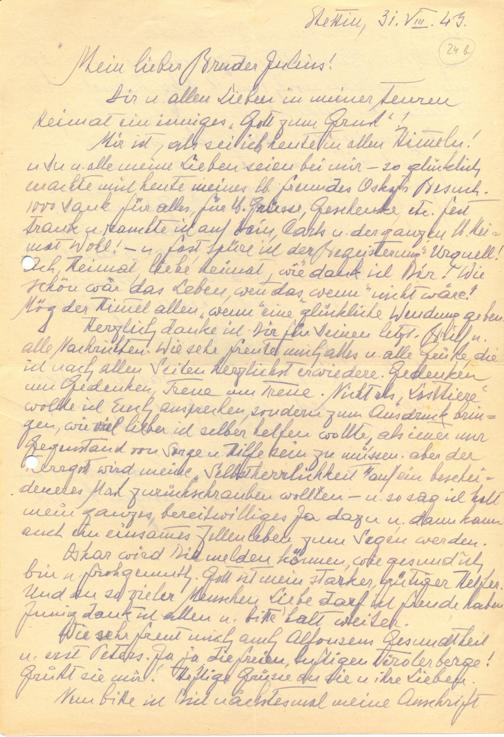 Stettin, 31. VIII. 43.
24 b
Mein lieber Bruder Julius!
Dir u allen Lieben in meiner teuren
Heimat ein inniges „Gott zum Gruß"!
Mir ist, als sei ich heute in allen Himeln!
u Du u alle meine Lieben seien bei mir – so glücklich
machte mich heute meines lb. freundes Oskars Besuch.
1000 Dank für alles, für lb. Grüsse, Geschenke, etc. fest
trank u ich auf Dein, Carls u der ganzen lb. Hei=
mat Wohl! – u fast spüre ich der Begeisterung Urquell!
Ach, Heimat, liebe Heimat, wie dank ich Dir! Wie
schön wär das Leben, wen das „wenn" nicht wäre!
Mög der Himel allen „wenn" eine glückliche Wendung geben
Herzlich danke ich Dir für Deinen letzt. Brief u.
alle Nachrichten. Wie sehr freute mich alles u. alle Grüße die
ich nach allen Seiten herzlichst erwiedere. Gedenken
um Gedenken, Treue um Treue. Nicht als
wollte ich Euch ansprechen, sondern zum Ausdruck brin=
gen, wie viel lieber ich selber helfen wollte, als imer nur
Gegenstand von Sorge u Hilfe sein zu müssen. aber der
Herrgott wird meine „Selbstherrlichkeit" auf ein beschei=
deneres Maß zurückschrauben wollten – u. so sag ich halt
mein ganzes, bereitwilliges Ja dazu u. dann kann
auch ein einsames Zellenleben zum Segen werden.
Oskar wird Dir melden können, wie gesund ich
bin u frohgemuth. Gott ist mein starker, gütiger Helfer.
Und an so vieler Menschen Liebe darf ich freude haben
Innig dank ich allen u. bitte halt weiter.
Wie sehr freut mich auch Alfonsens Gesundheit
u. erst Peters. Ja, ja die freien, luftigen Tirolerberge!
Grüßt sie mir! Grüsse an Sie u ihre Lieben.
Nun bitte ich Dir nächstesmal meine Anschrift